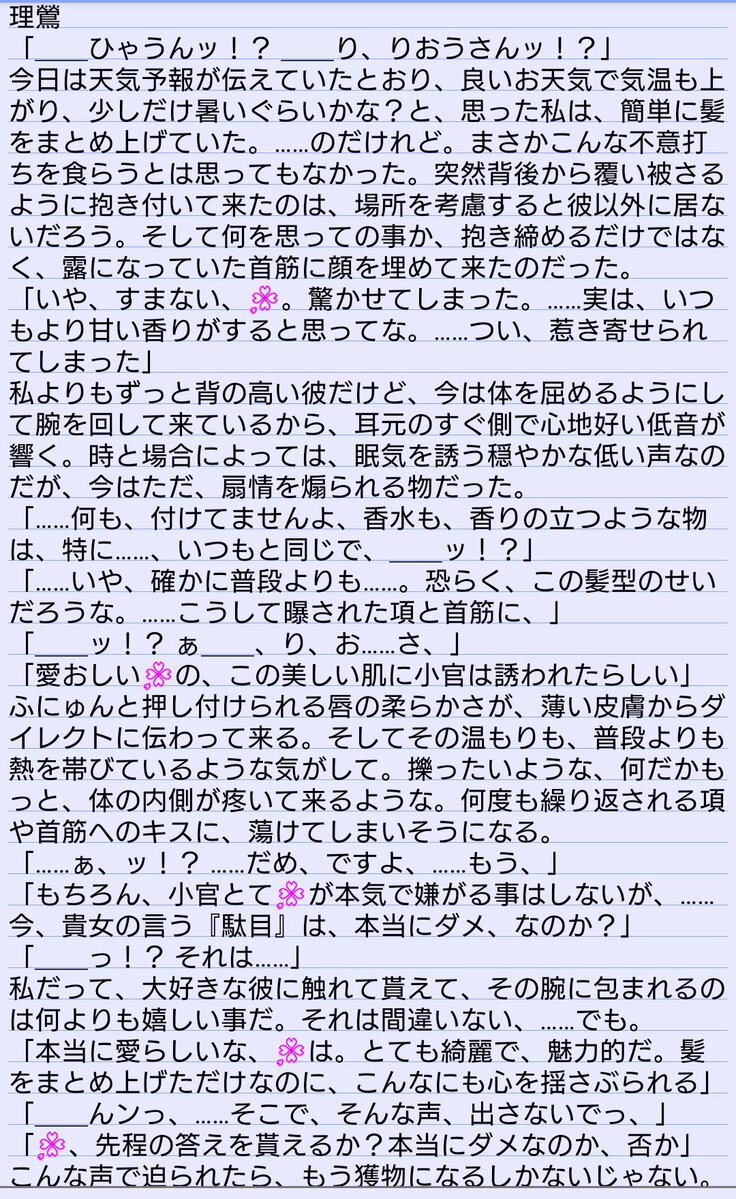 理鶯
「____ひゃうんッ！？ ____り、りおうさんッ！？」
今日は天気予報が伝えていたとおり、良いお天気で気温も上
がり、少しだけ暑いぐらいかな？と、思った私は、簡単に髪
をまとめ上げていた。……のだけれど。まさかこんな不意打
ちを食らうとは思ってもなかった。突然背後から覆い被さる
ように抱き付いて来たのは、場所を考慮すると彼以外に居な
いだろう。そして何を思っての事か、抱き締めるだけではな
く、露になっていた首筋に顔を埋めて来たのだった。
「いや、すまない、🌸。驚かせてしまった。……実は、いつ
もより甘い香りがすると思ってな。……つい、惹き寄せられ
てしまった」
私よりもずっと背の高い彼だけど、今は体を屈めるようにし
て腕を回して来ているから、耳元のすぐ側で心地好い低音が
響く。時と場合によっては、眠気を誘う穏やかな低い声なの
だが、今はただ、扇情を煽られる物だった。
「……何も、付けてませんよ、香水も、香りの立つような物
は、特に……、いつもと同じで、____ッ！？」
「……いや、確かに普段よりも……。恐らく、この髪型のせい
だろうな。……こうして曝された項と首筋に、」
「____ッ！？ ぁ____、り、お……さ、」
「愛おしい🌸の、この美しい肌に小官は誘われたらしい」
ふにゅんと押し付けられる唇の柔らかさが、薄い皮膚からダ
イレクトに伝わって来る。そしてその温もりも、普段よりも
熱を帯びているような気がして。擽ったいような、何だかも
っと、体の内側が疼いて来るような。何度も繰り返される項
や首筋へのキスに、蕩けてしまいそうになる。
「……ぁ、ッ！？ ……だめ、ですよ、……もう、」
「もちろん、小官とて🌸が本気で嫌がる事はしないが、……
今、貴女の言う『駄目』は、本当にダメ、なのか？」
「____っ！？ それは……」
私だって、大好きな彼に触れて貰えて、その腕に包まれるの
は何よりも嬉しい事だ。それは間違いない、……でも。
「本当に愛らしいな、🌸は。とても綺麗で、魅力的だ。髪
をまとめ上げただけなのに、こんなにも心を揺さぶられる」
「____んンっ、……そこで、そんな声、出さないでっ、」
「🌸、先程の答えを貰えるか？本当にダメなのか、否か」
こんな声で迫られたら、もう獲物になるしかないじゃない。